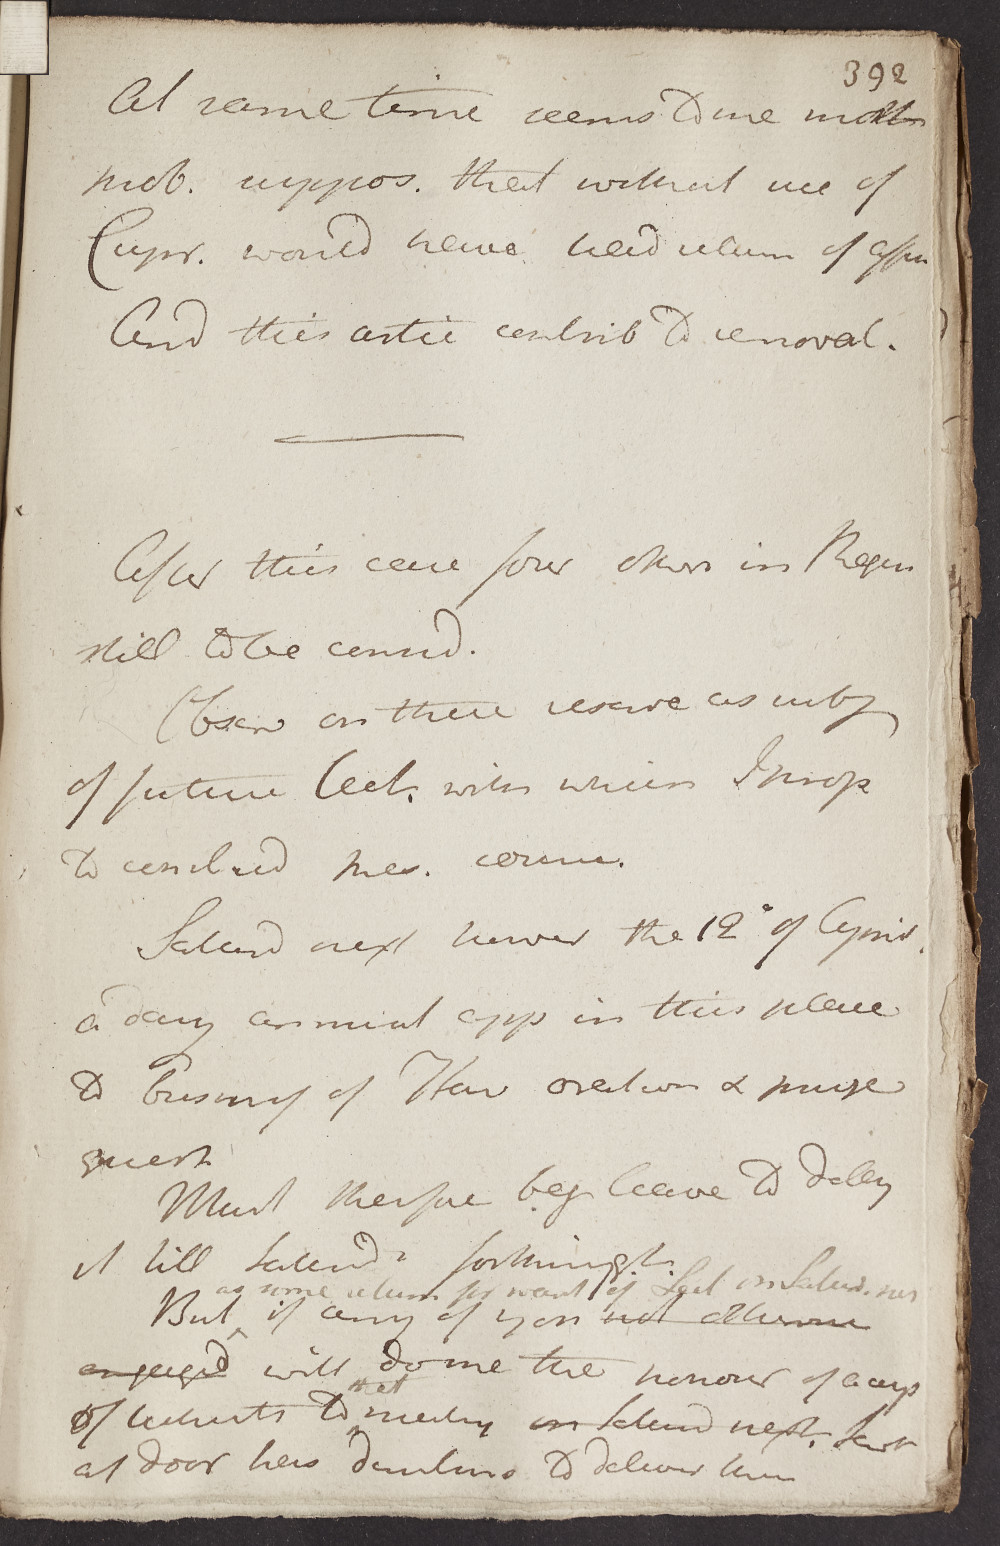 392
At same time seems to me most
prob. suppos. that without use of
Cupr. would have had return of affn
And this artic contrib to removal.
After this case four others in Regr
still to be considd.
Obser on these reserve as subj
of future Lect. with which I prop
to conclud pres. course.
Saturd next however the 12th of April.
a day annual app in this place
to business of Harv oration & prize
quest.
Must therefore beg leave to delay
it till Saturd fortnight.
as some return for want of Lect on Saturd. next
But if any of you not otherwise
engaged will do me the honour of accep
of tickets to that meeting on Saturd next. Serv
at door has directions to deliver them